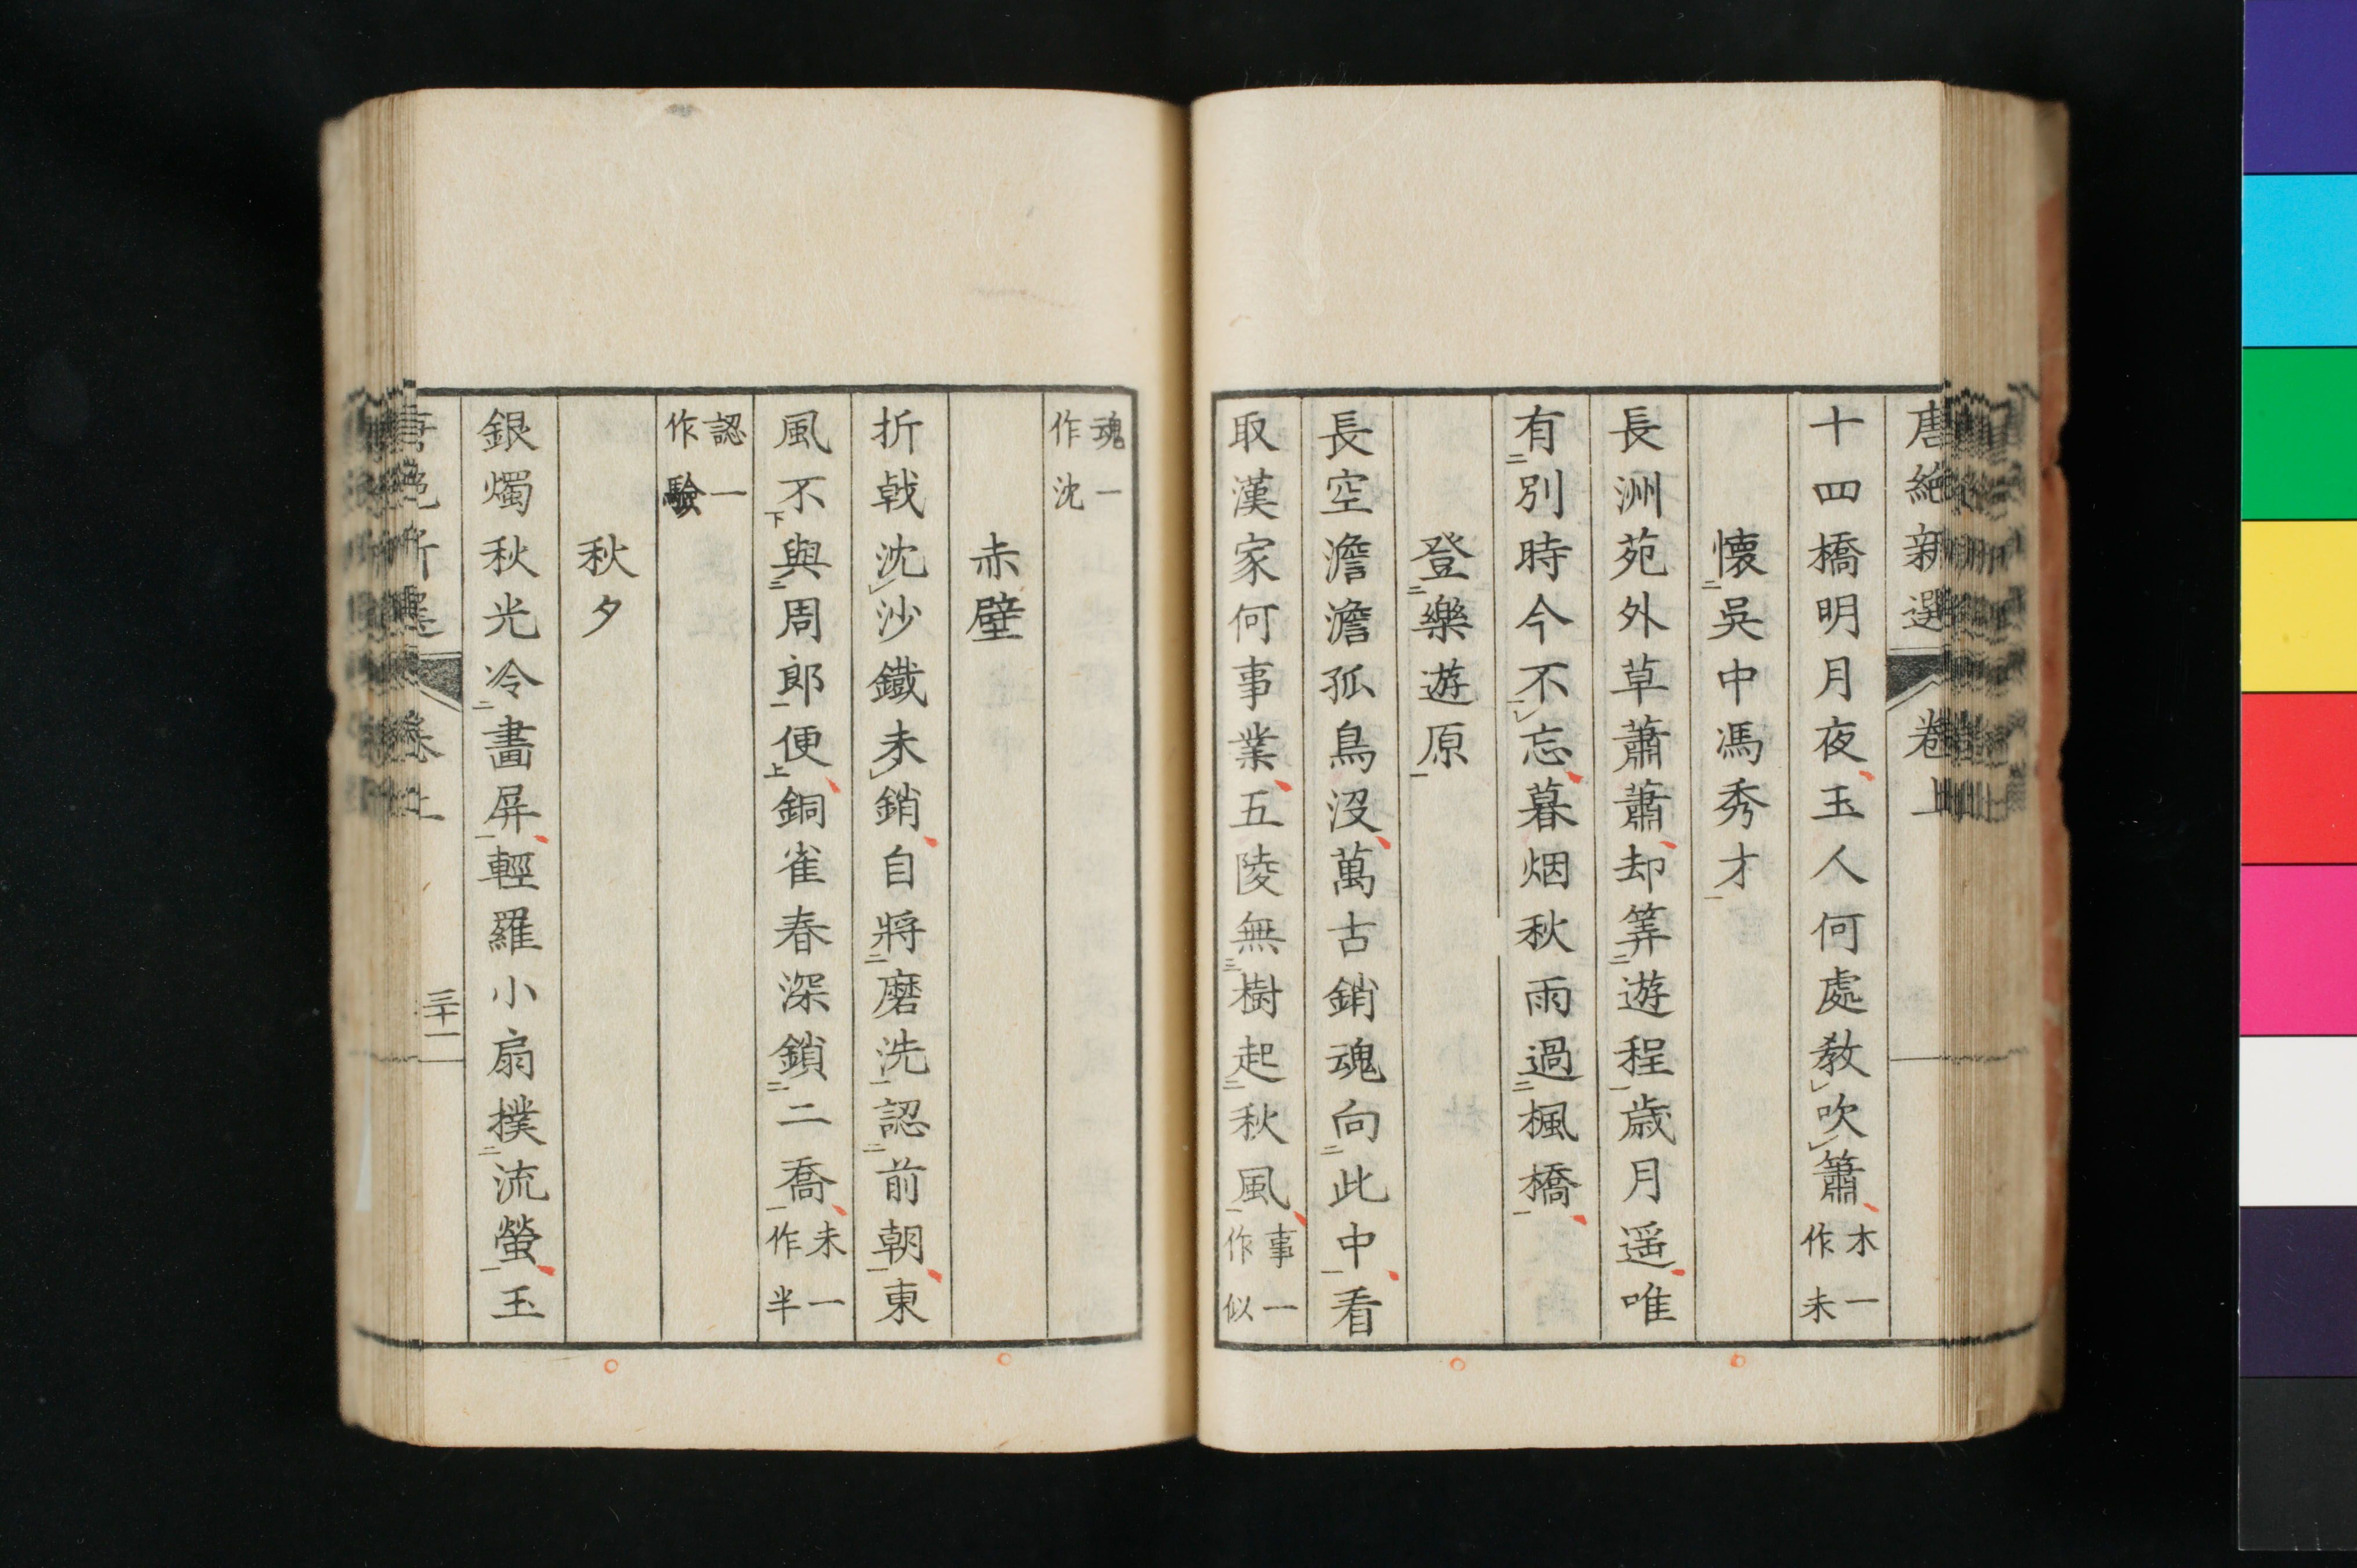 唐絶新選 卷上
十四橋明月夜玉人何處教吹簫木一作未
懷二吳中馮秀才一
長洲苑外草蕭蕭却筭二遊程一歲月遥唯
有二別時今不レ忘暮烟秋雨過二楓橋一
登二樂遊原一
長空澹澹孤鳥沒萬古銷魂向二此中一看
取漢家何事業五陵無三樹起二秋風一事一作似
魂一作沈
赤壁
折戟沈レ沙鐵未レ銷自將二磨洗一認二前朝一東
風不下與三周郎一便上銅雀春深鎖二二喬一未一作半
認一作驗
秋夕
銀燭秋光冷二畫屏一輕羅小扇撲二流螢一玉
唐絶新選 卷上 三十二